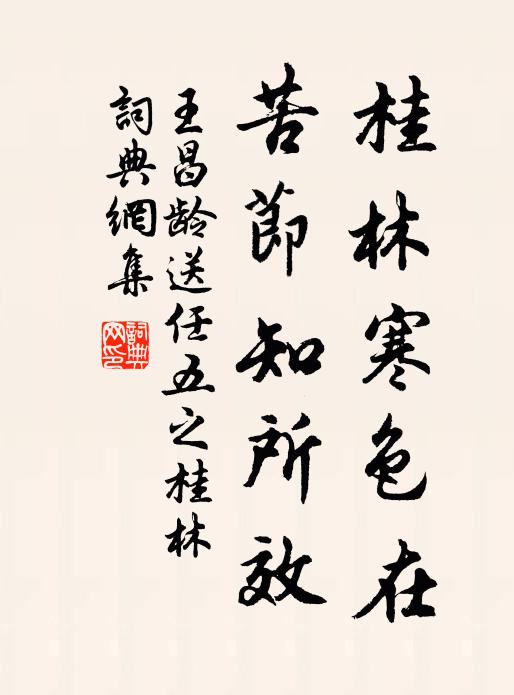 桂林寒色在
苦節知所效
王昌龄送任五之桂林
詞典網集
詞典网印